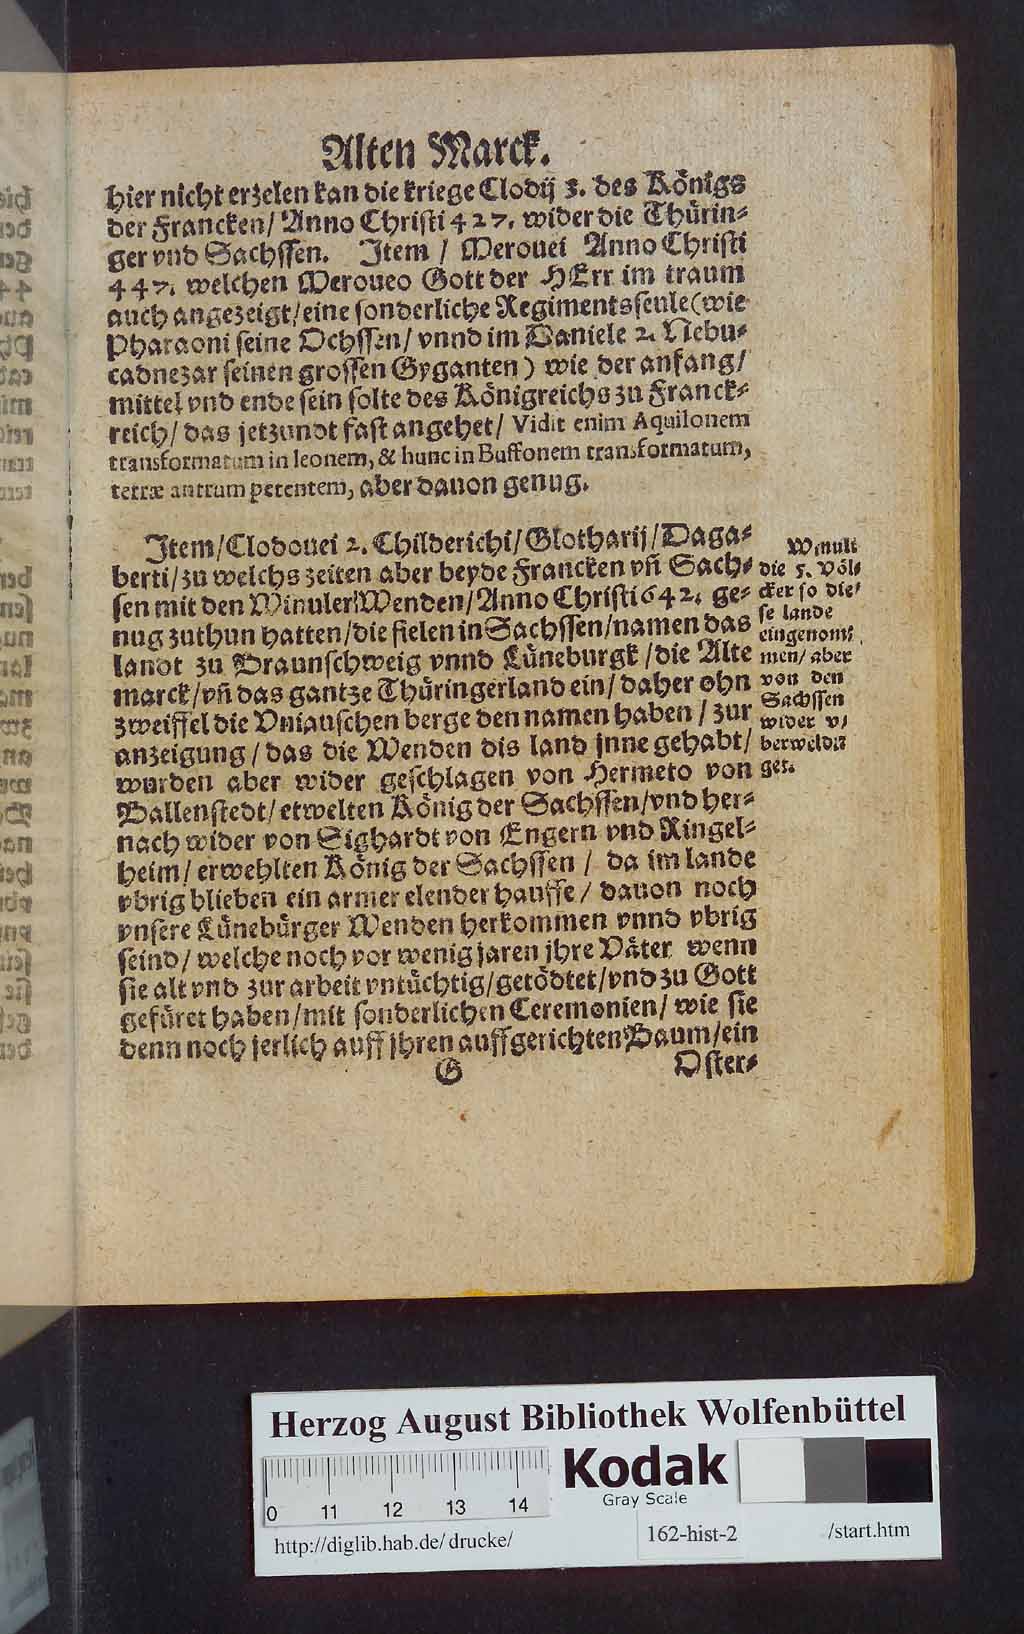 Alten Marck.
hier nicht erzelen kan die kriege Clodij 3. des Königs
der Francken/ Anno Christi 427. wider die Thürin-
ger vnd Sachssen. Item / Merouei Anno Christi
447. welchen Meroueo Gott der HErr im traum
auch angezeigt/ eine sonderliche Regimentsseule (wie
Pharaoni seine Ochssen/ vnnd im Daniele 2. Nebu-
cadnezar seinen grossen Gyganten) wie der anfang/
mittel vnd ende sein solte des Königreichs zu Franck-
reich/ das jetzundt fast angehet/ Vidit enim Aquilonem
transformatum in leonem, & hunc in Buffonem transformatum,
terræ antrum petentem, aber dauon genug.
Item/ Clodouei 2. Childerichi/ Glotharij/ Daga-
berti/ zu welchs zeiten aber beyde Francken vñ Sach-
sen mit den Winuler/ Wenden/ Anno Christi 642. ge-
nug zuthun hatten/ die fielen in Sachssen/ namen das
landt zu Braunschweig vnnd Lüneburgk/ die Alte
marck/ vñ das gantze Thüringerland ein/ daher ohn
zweiffel die Vniauschen berge den namen haben / zur
anzeigung/ das die Wenden dis land jnne gehabt/
wurden aber wider geschlagen von Hermeto von
Ballenstedt/ etwelten König der Sachssen/ vnd her-
nach wider von Sighardt von Engern vnd Ringel-
heim/ erwehlten König der Sachssen / da im lande
vbrig blieben ein armer elender hauffe/ dauon noch
vnsere Lünebürger Wenden herkommen vnnd vbrig
seind/ welche noch vor wenig jaren jhre Väter wenn
sie alt vnd zur arbeit vntüchtig/ getödtet/ vnd zu Gott
gefüret haben/ mit sonderlichen Ceremonien/ wie sie
denn noch jerlich auff jhren auffgerichten Baum/ ein
G Oster-
Winuli
die 5. völ-
cker so die-
se lande
eingenom-
men/ aber
von den
Sachssen
wider v-
berweldi
get.
Herzog August Bibliothek Wolfenbüttel
Kodak
Gray Scale
0 11 12 13 14
http://diglib.hab.de/drucke/ 162-hist-2 /start.htm